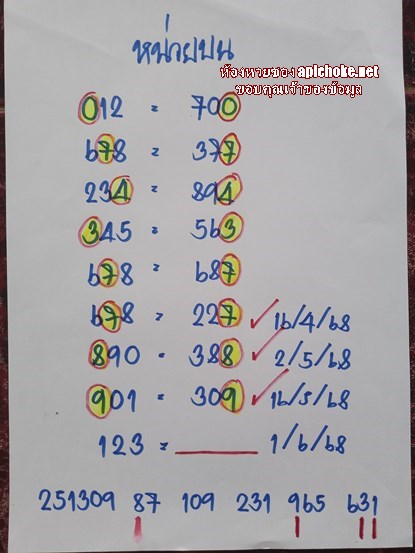 หน่วยบน
ห้องหวยของ apichoke.net
ขอบคุณเจ้าของข้อมูล
012 = 700
678 = 377
234 = 894
345 = 563
678 = 687
678 = 227 ✓ 16/4/68
890 = 388 ✓ 2/5/68
901 = 309 ✓ 16/5/68
123 = ______ 1/6/68
251309 87 109 231 965 631